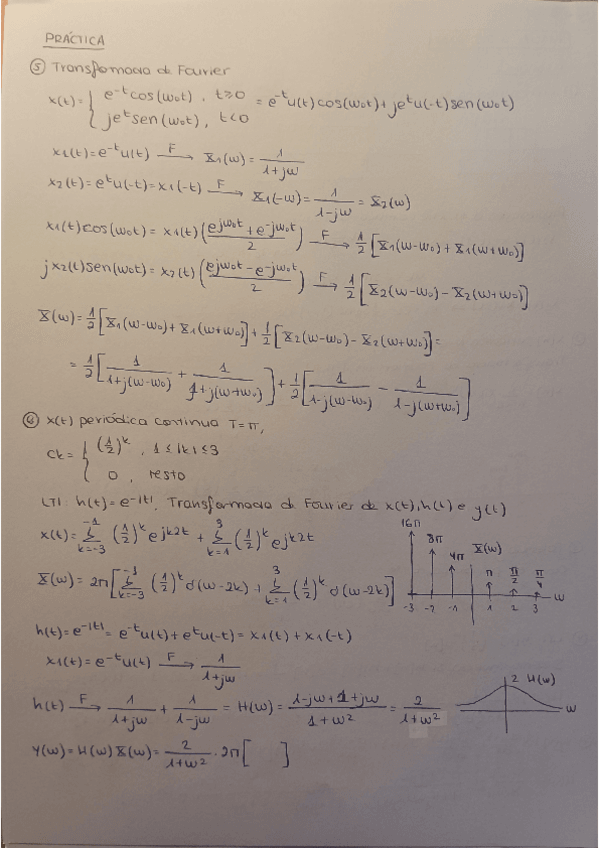 PRÁCTICA
⑤ Transformada de Fourier
x(t) = { e^-t cos(w₀t), t≥0 = e^-t u(t) cos(w₀t) + je^t u(-t) sen(w₀t)
je^t sen(w₀t), t<0
x₁(t) = e^-t u(t) —F→ X₁(w) = 1/(1+jw)
x₂(t) = e^t u(-t) = x₁(-t) —F→ X₁(-w) = 1/(1-jw) = X₂(w)
x₁(t) cos(w₀t) = x₁(t) ((e^jw₀t + e^-jw₀t)/2) —F→ 1/2 [X₁(w-w₀) + X₁(w+w₀)]
j x₂(t) sen(w₀t) = x₂(t) ((e^jw₀t - e^-jw₀t)/2) —F→ 1/2 [X₂(w-w₀) - X₂(w+w₀)]
X(w) = 1/2 [X₁(w-w₀) + X₁(w+w₀)] + 1/2 [X₂(w-w₀) - X₂(w+w₀)] =
= 1/2 [1/(1+j(w-w₀)) + 1/(1+j(w+w₀))] + 1/2 [1/(1-j(w-w₀)) - 1/(1-j(w+w₀))]
⑥ x(t) periódica continua T=π,
Ck = { (1/2)^k, 1≤|k|≤3
0, resto
LTI: h(t) = e^-|t|. Transformada de Fourier de x(t), h(t) e y(t)
x(t) = Σ_{k=-3}^{-1} (1/2)^k e^jk2t + Σ_{k=1}^{3} (1/2)^k e^jk2t
16π 8π 4π X(w) π π/2 π/4
-3 -2 -1 1 2 3 w
X(w) = 2π [Σ_{k=-3}^{-1} (1/2)^k δ(w-2k) + Σ_{k=1}^{3} (1/2)^k δ(w-2k)]
h(t) = e^-|t| = e^-t u(t) + e^t u(-t) = x₁(t) + x₁(-t)
x₁(t) = e^-t u(t) —F→ 1/(1+jw)
h(t) —F→ 1/(1+jw) + 1/(1-jw) = H(w) = (1-jw+1+jw)/(1+w²) = 2/(1+w²)
2 H(w)
w
Y(w) = H(w) X(w) = 2/(1+w²) · 2π [ ]